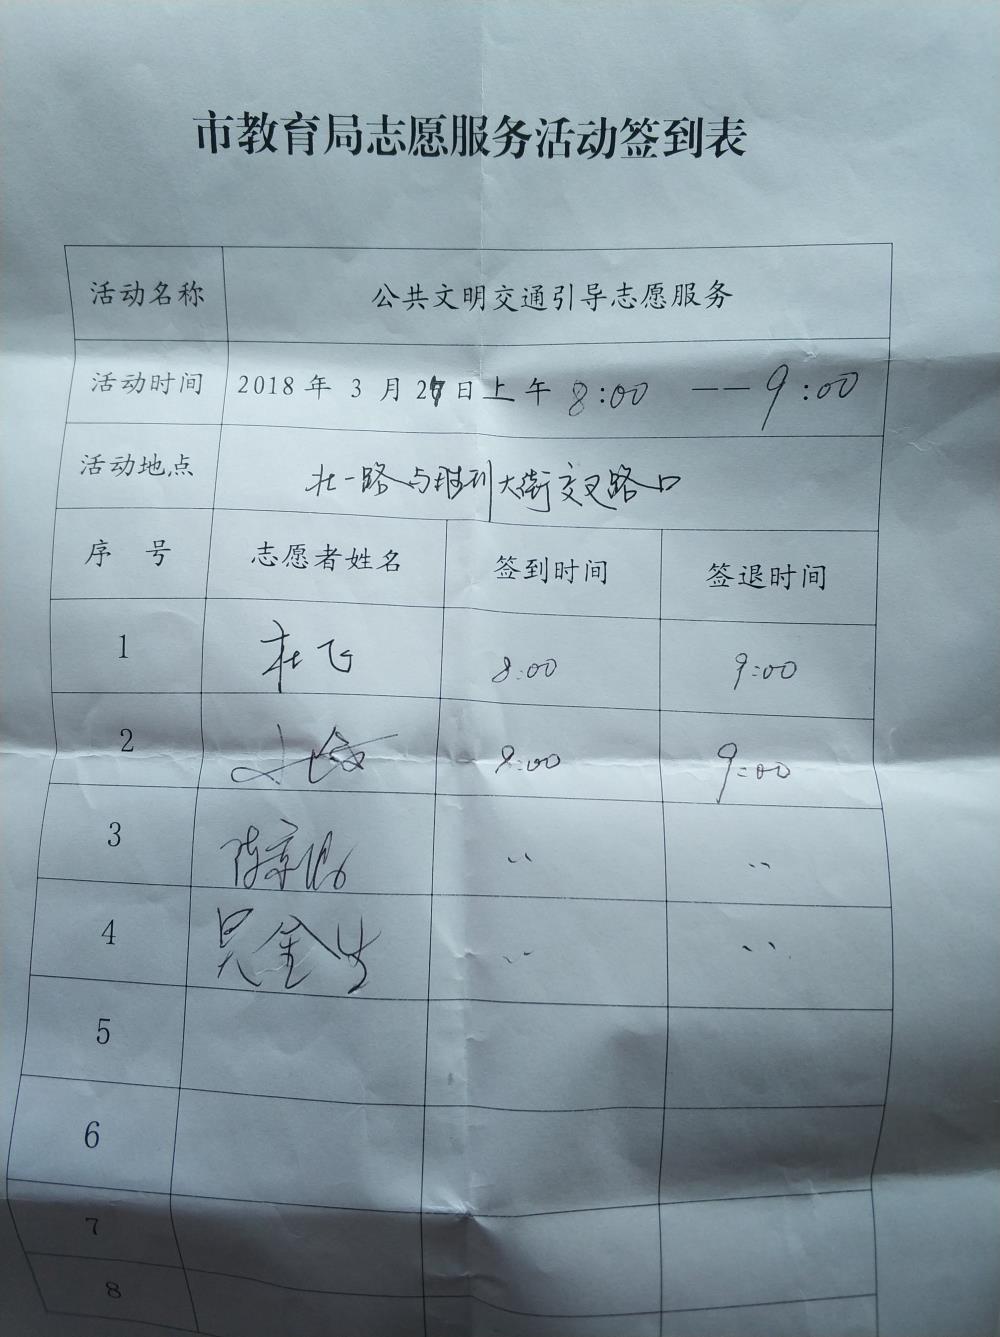 市教育局志愿服务活动签到表
活动名称 公共文明交通引导志愿服务
活动时间 2018年3月27日上午 8:00 —— 9:00
活动地点 北一路与胜利大街交叉路口
序 号 志愿者姓名 签到时间 签退时间
1 杜飞 8:00 9:00
2 8:00 9:00
3 〃 〃
4 〃 〃
5
6
7
8